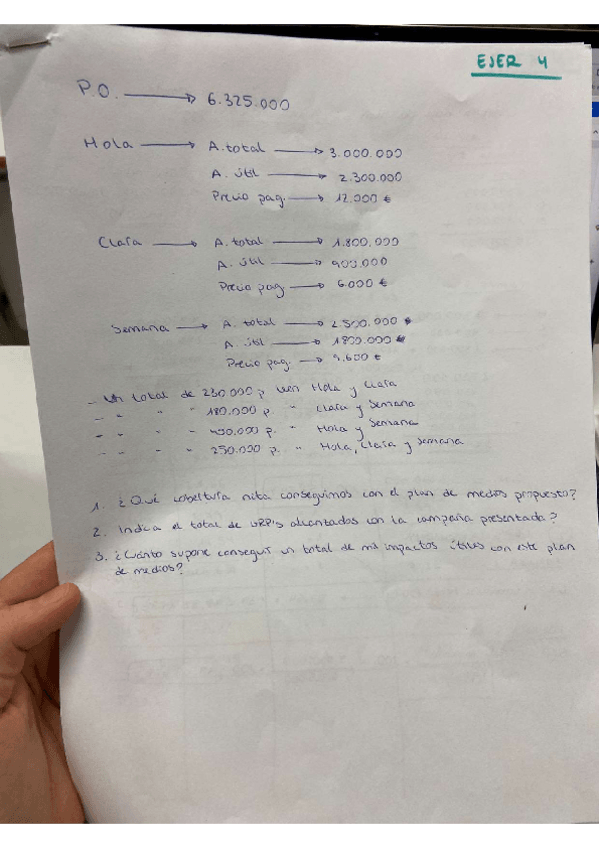 EJER 4
P.O. → 6.325.000
Hola → A. total → 3.000.000
A. útil → 2.300.000
Precio pag. → 12.000 €
Clara → A. total → 1.800.000
A. útil → 900.000
Precio pag → 6.000 €
Semana → A. total → 2.500.000
A. útil → 1.800.000
Precio pag. → 9.600 €
- Un total de 230.000 p leen Hola y Clara
- " " " 180.000 p. " Clara y Semana
- " " " 450.000 p. " Hola y Semana
- " " " 250.000 p. " Hola, Clara y Semana
1. ¿Qué cobertura neta conseguimos con el plan de medios propuesto?
2. Indica el total de GRP's alcanzados con la campaña presentada?
3. ¿Cuánto supone conseguir un total de mil impactos útiles con este plan
de medios?